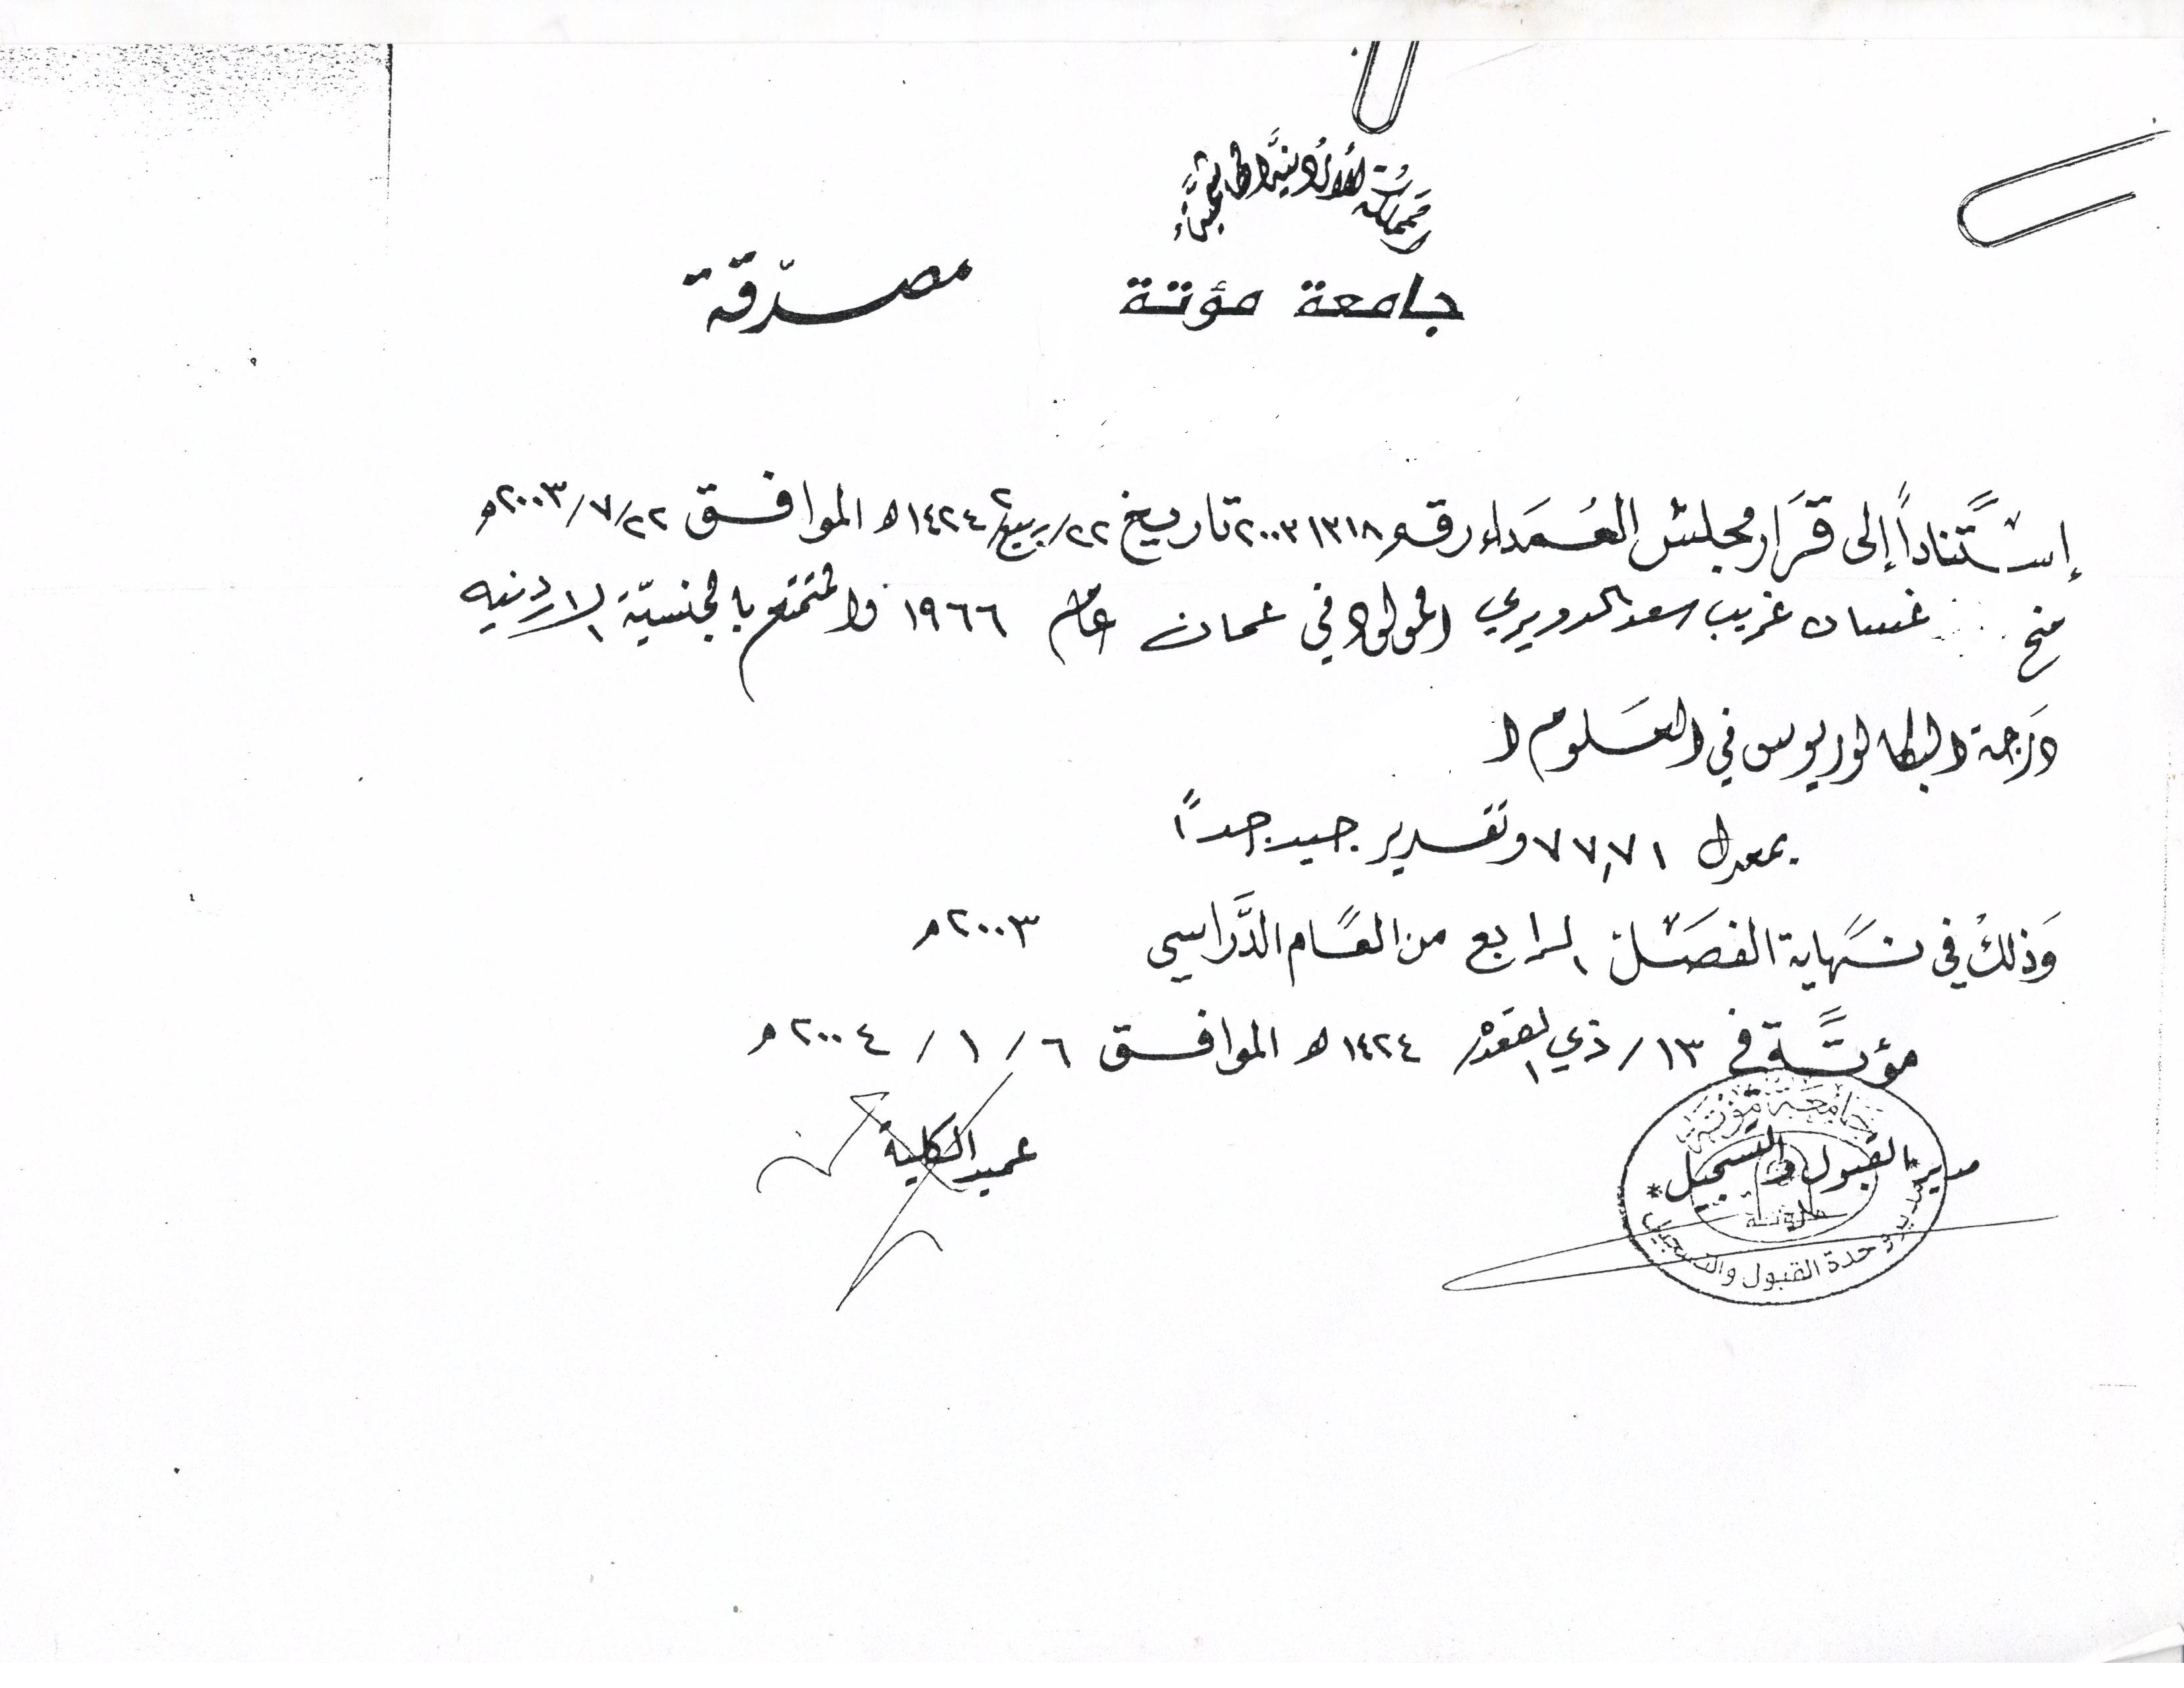 المملكة الأردنية الهاشمية
جامعة مؤتة
مصدّقة
إستناداً إلى قرار مجلس العمداء رقم ٢٠٠٣١٣١٨ تاريخ ٢٢/ربيع٢/١٤٢٤ه الموافق ٢٠٠٣/٧/٢٢م
منح غسان غريب سعد الدويري المولود في عمان عام ١٩٦٦ والمتمتع بالجنسيّة الاردنيه
درجة البكالوريوس في العلوم ا
بمعدل ٧٧,٧١ وتقدير جيد جداً
وذلك في نهاية الفصل الرابع من العام الدّراسي ٢٠٠٣م
مؤتة في ١٣/ ذي القعدة/ ١٤٢٤ ه الموافق ٦ / ١ / ٢٠٠٤م
مدير القبول والتسجيل
عميد الكلية
جامعة مؤتة
مؤتة
وحدة القبول والتسجيل